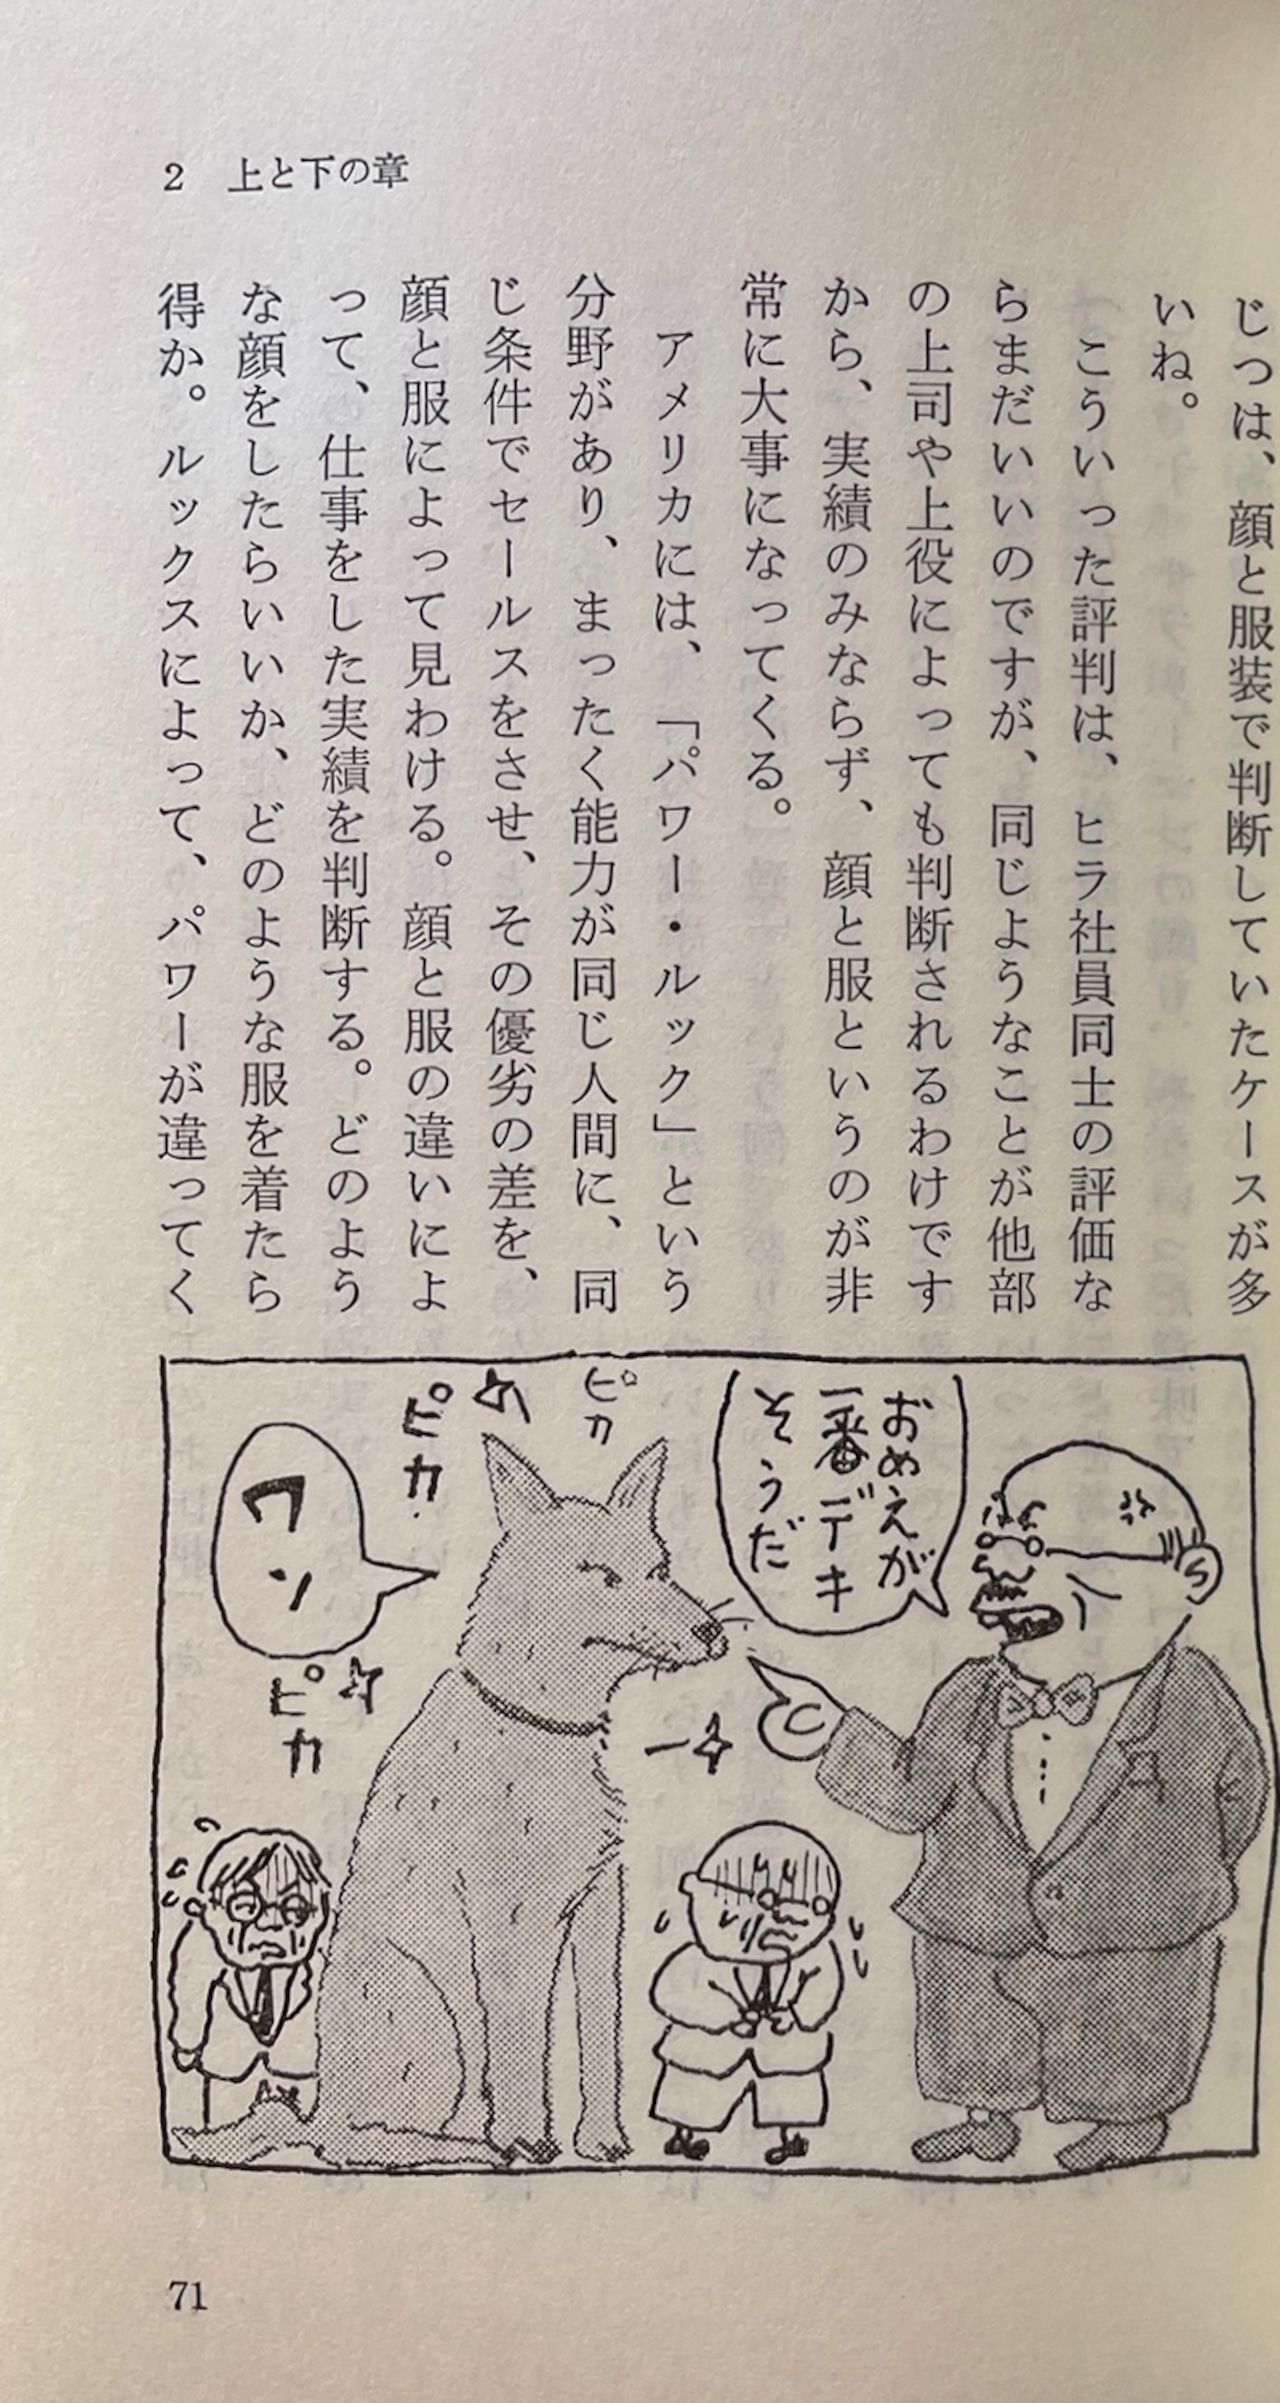 2　上と下の章
じつは、顔と服装で判断していたケースが多
いね。
こういった評判は、ヒラ社員同士の評価な
らまだいいのですが、同じようなことが他部
の上司や上役によっても判断されるわけです
から、実績のみならず、顔と服というのが非
常に大事になってくる。
アメリカには、「パワー・ルック」という
分野があり、まったく能力が同じ人間に、同
じ条件でセールスをさせ、その優劣の差を、
顔と服によって見わける。顔と服の違いによ
って、仕事をした実績を判断する。どのよう
な顔をしたらいいか、どのような服を着たら
得か。ルックスによって、パワーが違ってく
おめえが
一番デキ
そうだ
ピカ
ピカ
ワン
ピカ
71